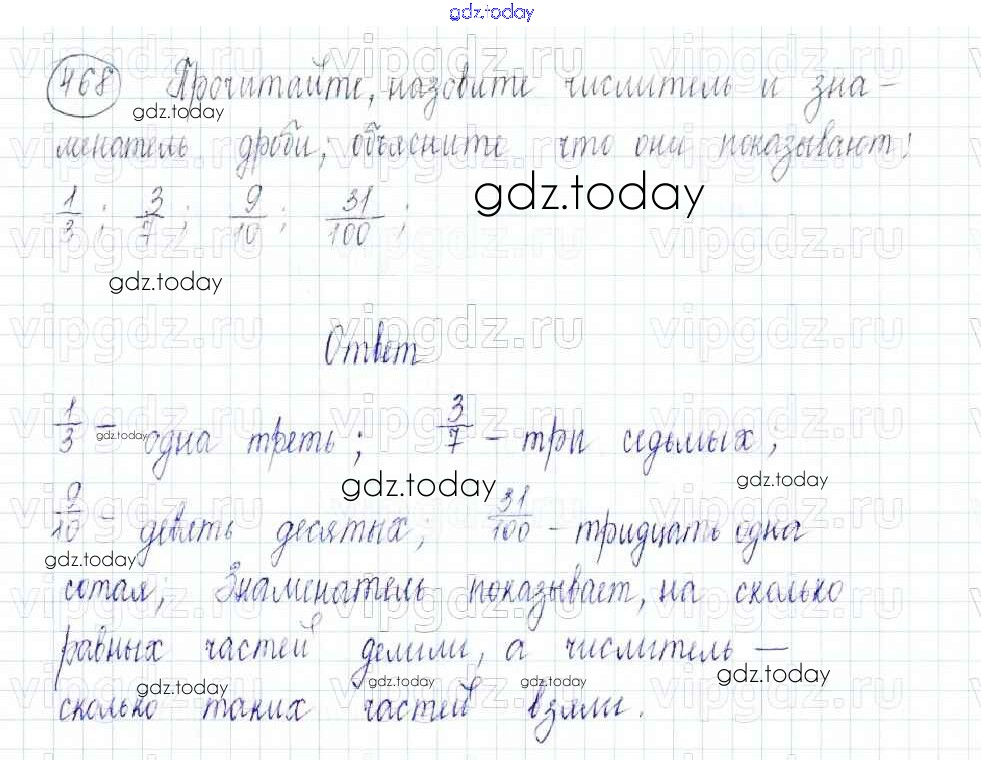 gdz.today
468 Прочитайте, назовите числитель и зна-
gdz.today
менатель дроби, объясните что они показывают:
1/3; 3/7; 9/10; 31/100;
gdz.today
gdz.today
Ответ
1/3 - одна треть; 3/7 - три седьмых;
gdz.today
gdz.today
gdz.today
9/10 - девять десятых; 31/100 - тридцать одна
gdz.today
сотая; Знаменатель показывает, на сколько
равных частей делили, а числитель —
gdz.today
gdz.today
gdz.today
gdz.today
сколько таких частей взяли.
vipgdz.ru